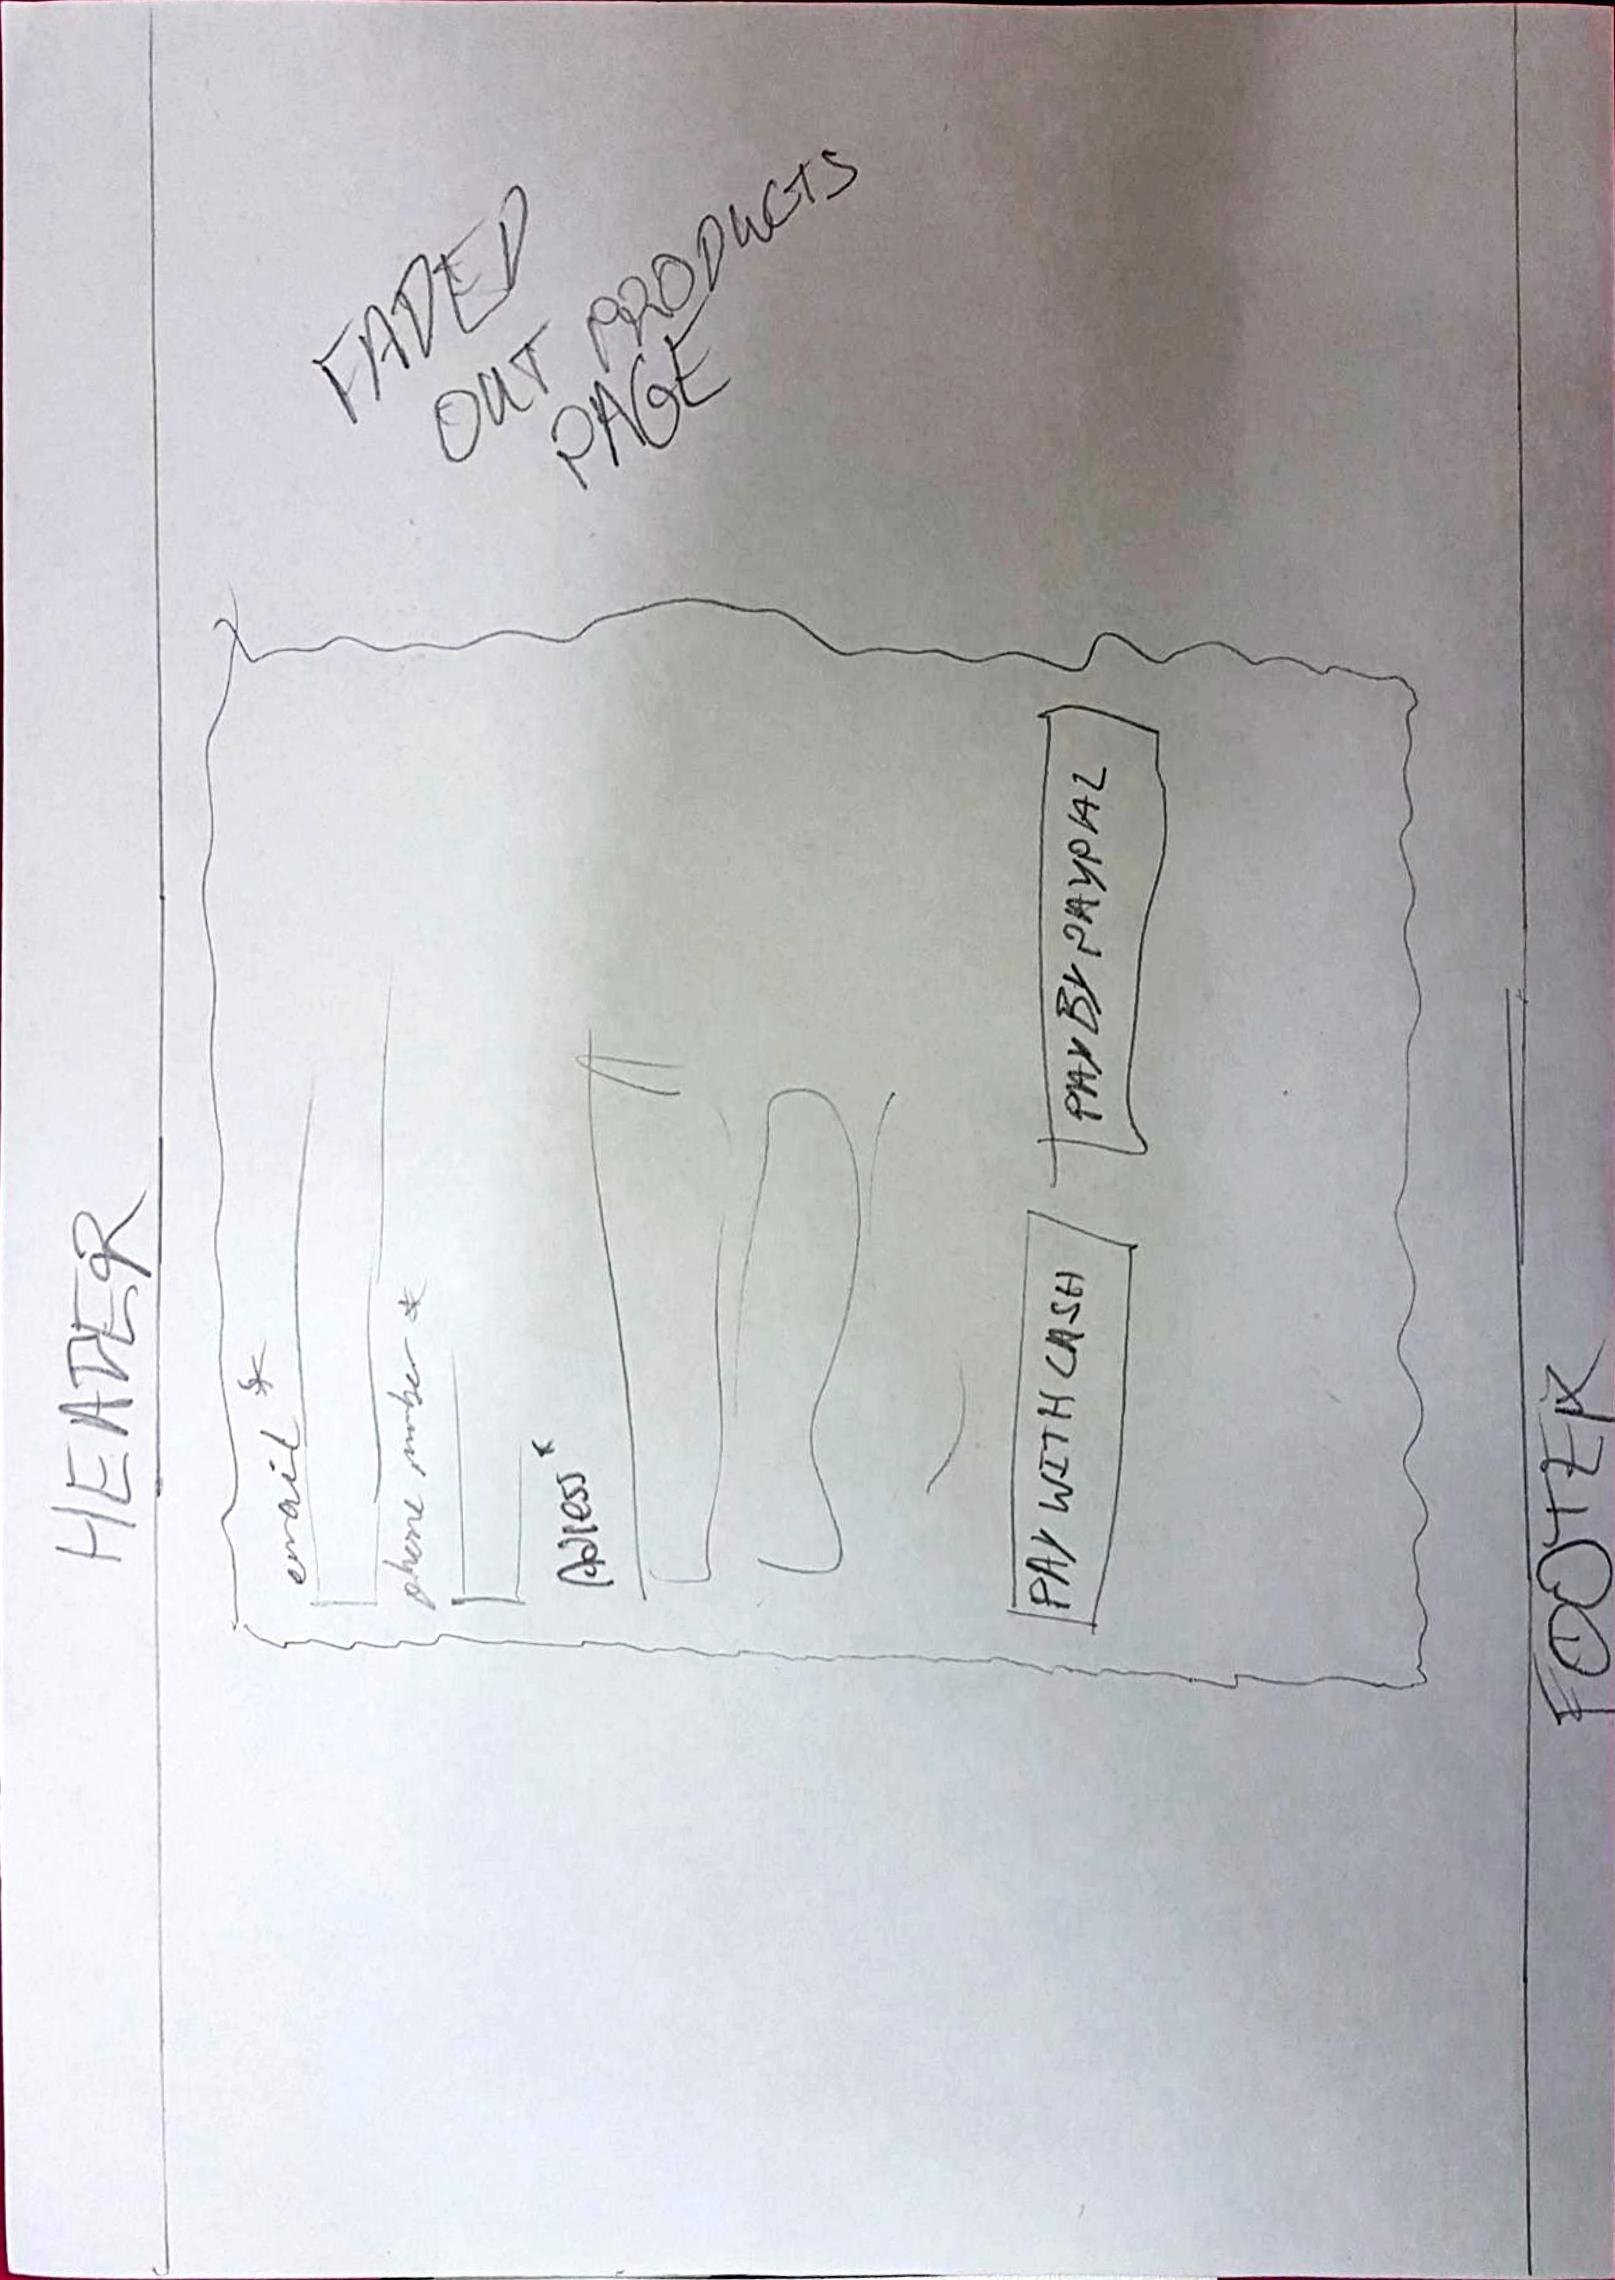 HEADER
email *
phone number *
Adress*
PAY WITH CASH
PAY BY PAYPAL
FADED
OUT PRODUCTS
PAGE
FOOTER